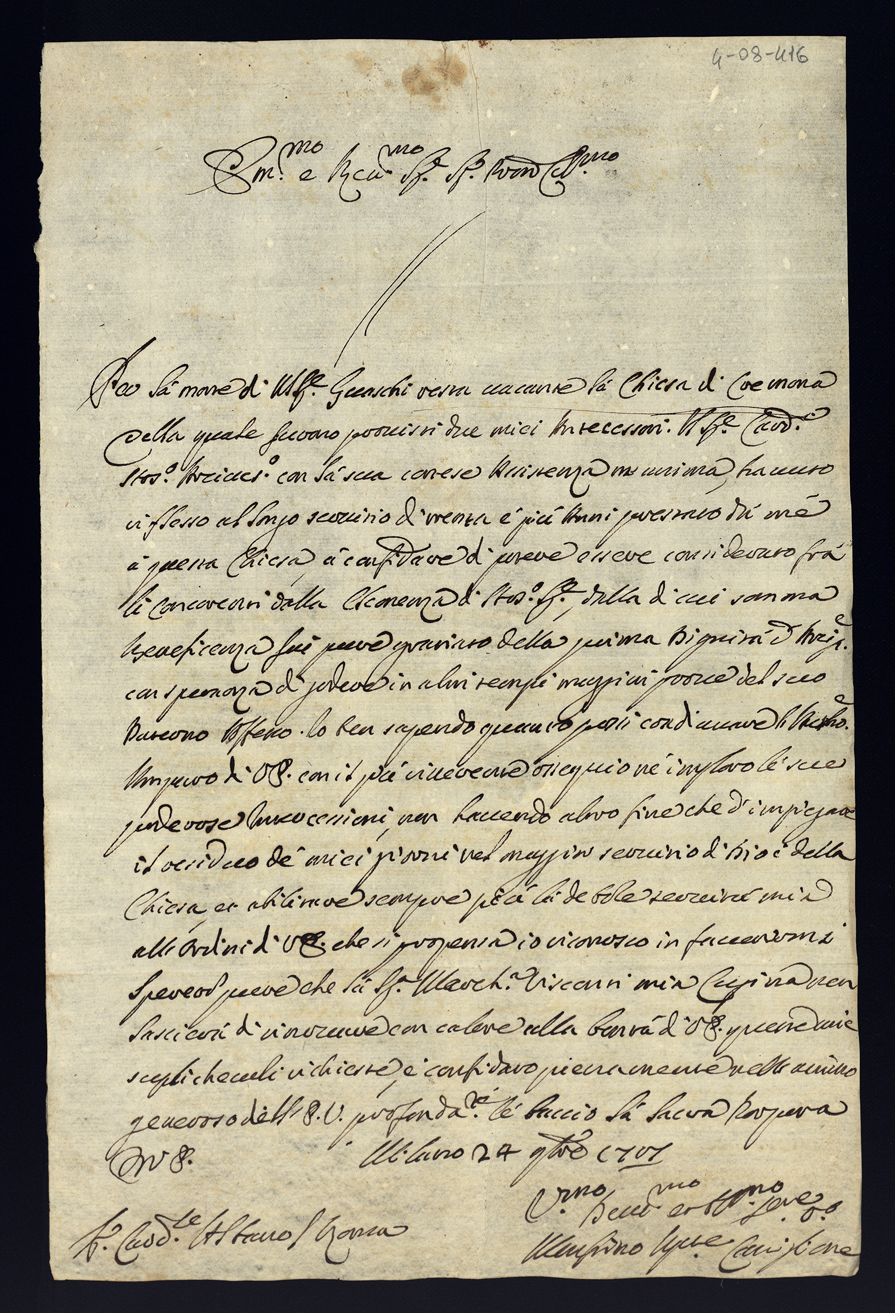 4-08-416
Em.mo e Rev.mo Sig.r Sig.r Pron Col.mo
Per la morte di Msg.r Guaschi resta uacante la Chiesa di Cremona
della quale furono prouisti due miei Antecessori. Msg.r Card.e
Nos.o Arciues.o con la sua cortese Assistenza m'anima, hauuto
riflesso al longo seruitio di trenta e più Anni prestato da me
a questa Chiesa, a confidare di poter essere considerato frà
li Concorrenti dalla Clemenza di Nos.o Sig.re, dalla di cui somma
Beneficenza fui pure gratiato della prima Dignità d'
con speranza di godere in altri tempi maggiori proue del suo
Paterno Affetto. Io ben sapendo quanto possi coadiuuare l'
Amparo di V.E. con il più riuerente ossequio ne imploro le sue
poderose Intercessioni, non hauendo altro fine che d'impiegare
il residuo de miei giorni nel maggior seruitio di Dio e della
Chiesa, et abilitare sempre più la debole seruitù mia
alli Ordini di V.E. che si propensa io riconosco in fauorirmi
Spererò pure che la Sig.ra March.a Visconti mia Cugina non
lascierà di rinouare con calore alla bontà di V.E. queste mie
supplicheuoli richieste, e confidato pienamente nell'animo
generoso dell'E.V. profonda.te le baccio la Sacra Porpora
Di V.E. Milano 24 9bre 1701
V.mo Deuot.mo et Obl.mo Seru.e
S.r Card.le Albano / Roma
Castiglione